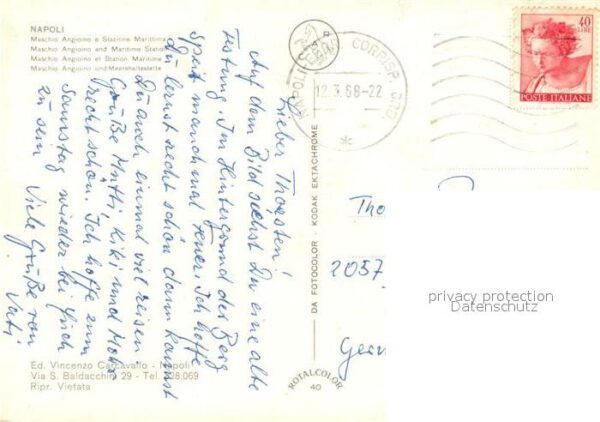 NAPOLI
Maschio Angioino e Stazione Marittima
Maschio Angioino and Maritime Station
Maschio Angioino et Station Maritime
Maschio Angioino und Meershaltestelle
Lieber Thorsten!
Auf dem Bild siehst Du eine alte
Festung. Im Hintergrund der Berg
speit manchmal Feuer. Ich hoffe
Du lernst recht schön dann kannst
Du auch einmal viel reisen.
Grüße Mutti, Kiki und
recht schön. Ich hoffe zum
Samstag wieder bei Euch
zu sein Viele Grüße von
Vati
Ed. Vincenzo Carcavallo - Napoli
Via S. Baldacchini 29 - Tel. 328.069
Ripr. Vietata
DA FOTOCOLOR - KODAK EKTACHROME
ROTALCOLOR
40
NAPOLI CORRISP.
12.3.68-22
40
LIRE
POSTE ITALIANE
Tho
2057
Germ
privacy protection
Datenschutz